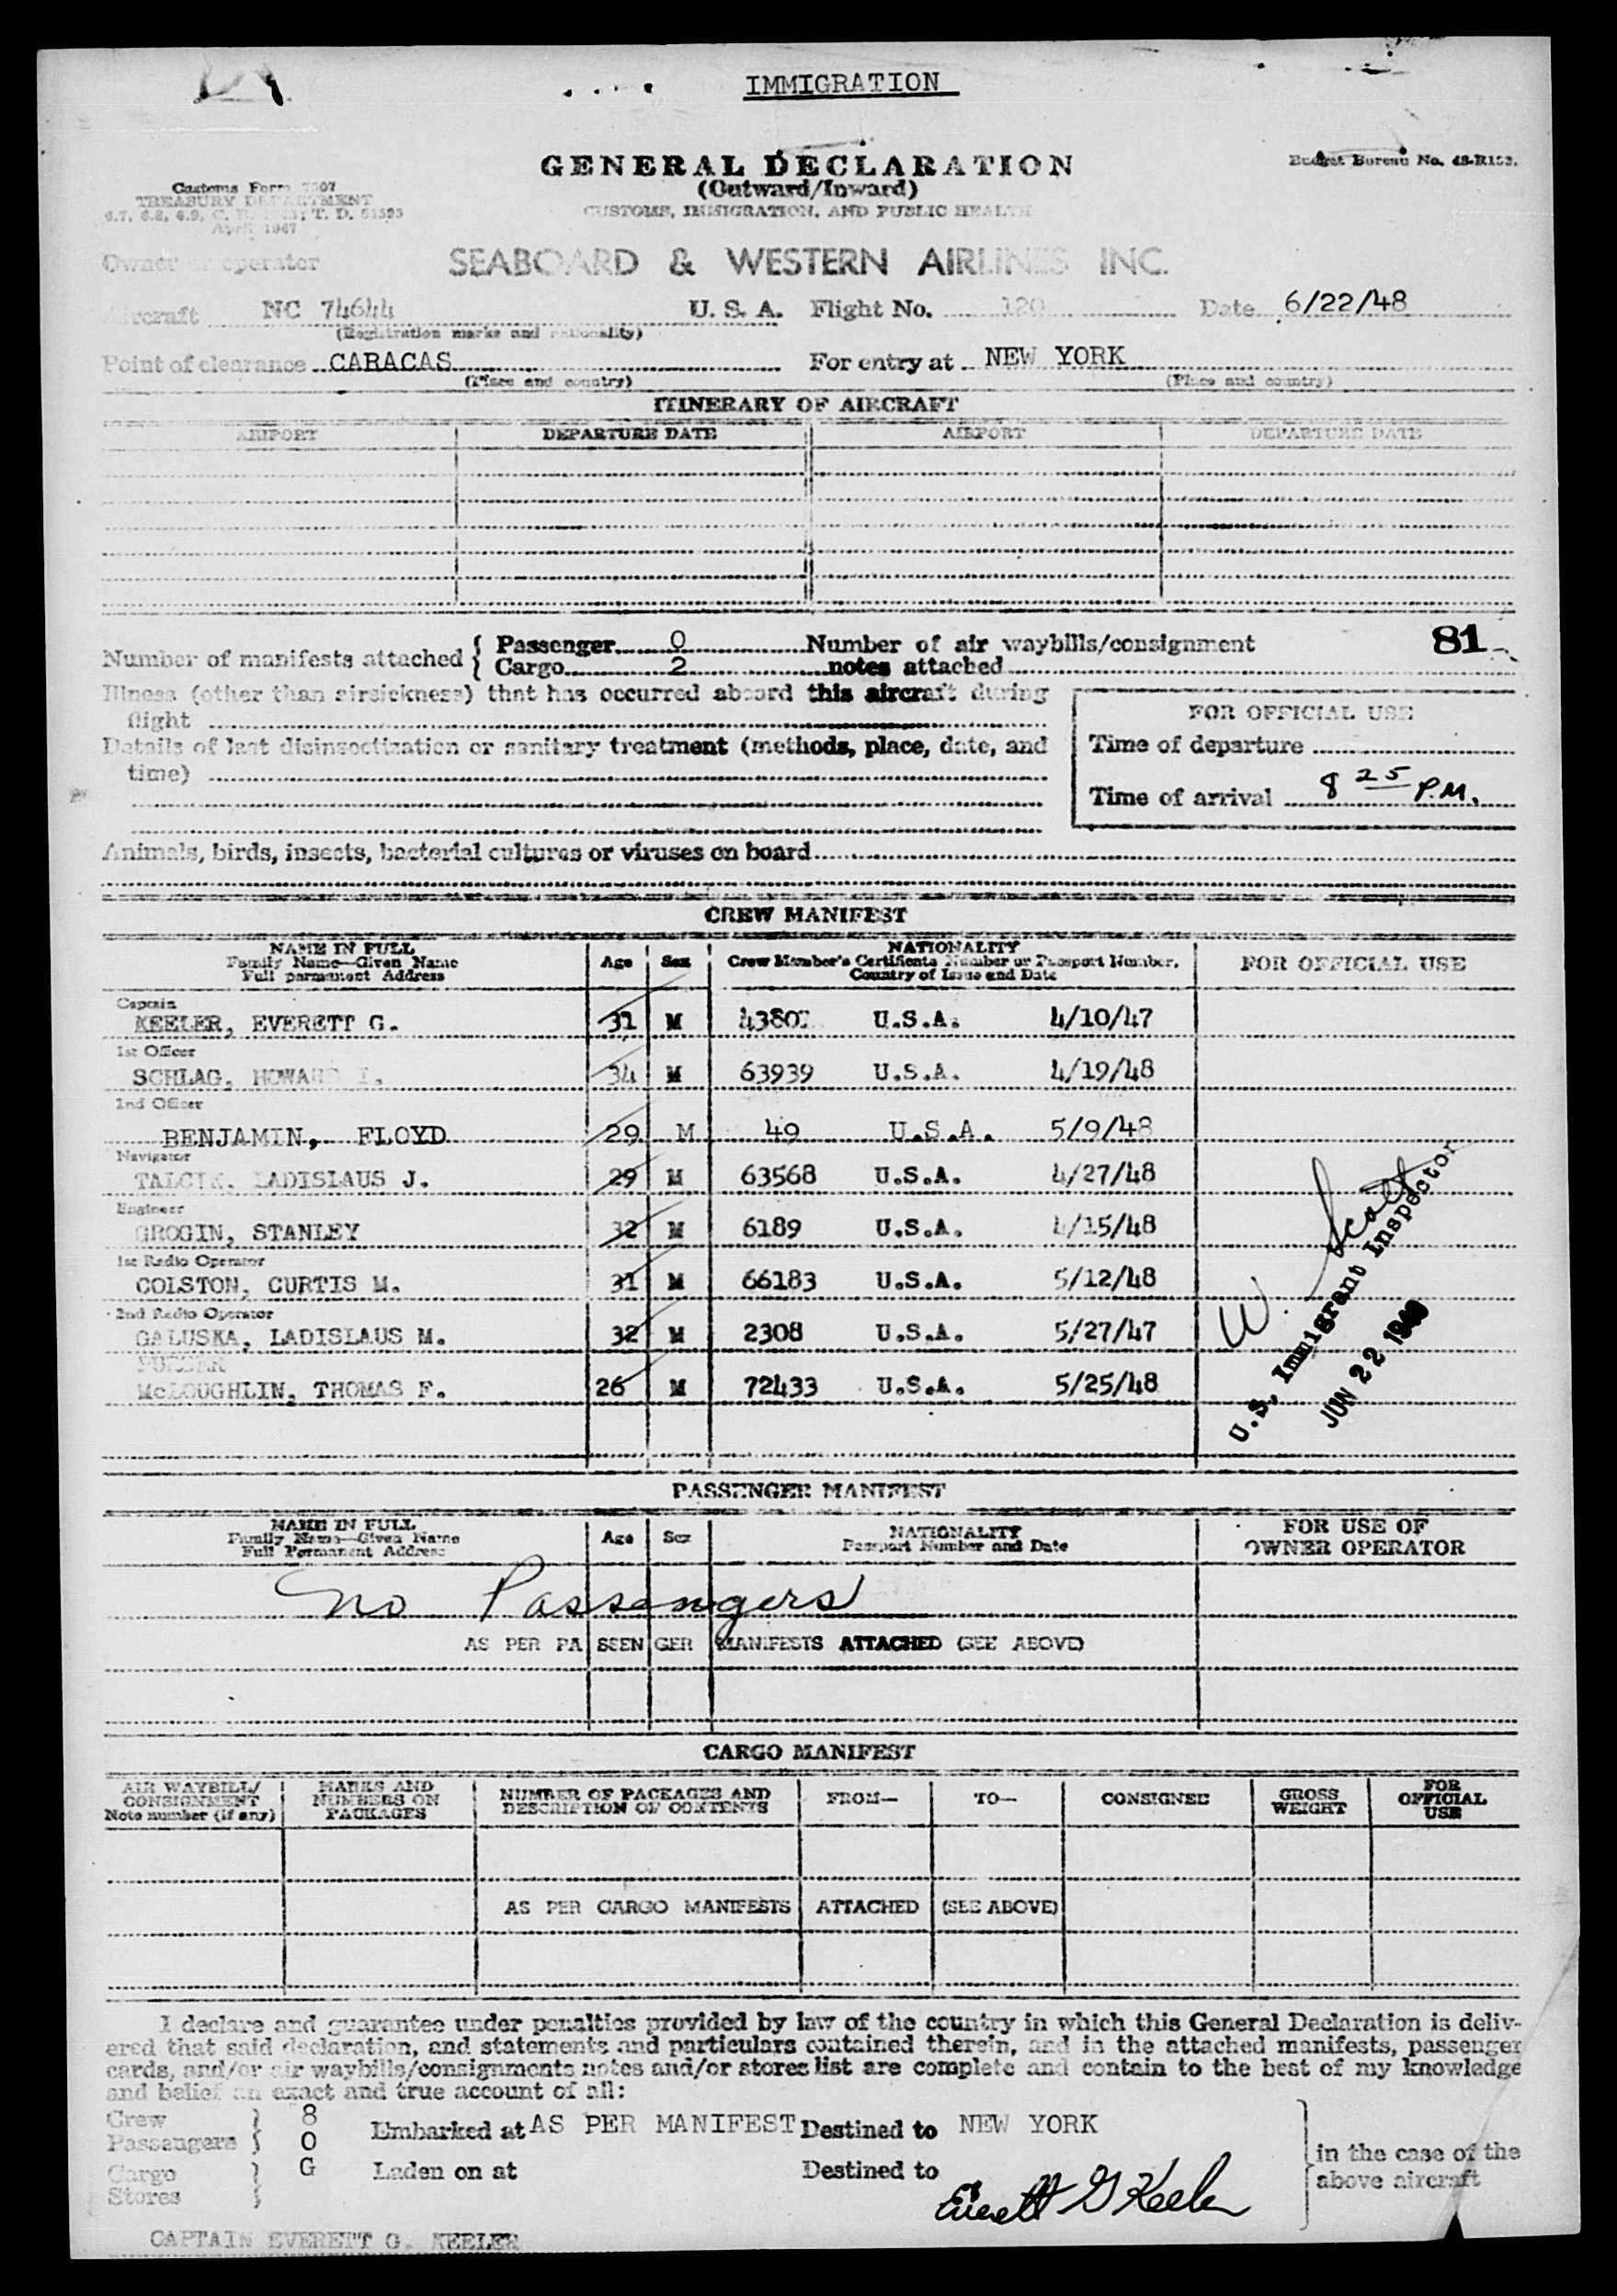 IMMIGRATION
GENERAL DECLARATION
(Outward/Inward)
CUSTOMS, IMMIGRATION, AND PUBLIC HEALTH
Budget Bureau No.
Customs Form 7507
TREASURY DEPARTMENT
April 1947
Owner or operator SEABOARD & WESTERN AIRLINES INC.
Aircraft NC 74644 U. S. A. Flight No. 120 Date 6/22/48
(Registration marks and nationality)
Point of clearance CARACAS For entry at NEW YORK
(Place and country) (Place and country)
ITINERARY OF AIRCRAFT
AIRPORT DEPARTURE DATE AIRPORT DEPARTURE DATE
Number of manifests attached { Passenger 0 Number of air waybills/consignment 81
{ Cargo 2 notes attached
Illness (other than airsickness) that has occurred aboard this aircraft during
flight
FOR OFFICIAL USE
Details of last disinsectization or sanitary treatment (methods, place, date, and
time)
Time of departure
Time of arrival 8 25 P.M.
Animals, birds, insects, bacterial cultures or viruses on board
CREW MANIFEST
NAME IN FULL
Family Name—Given Name
Full permanent Address
Age Sex
NATIONALITY
Crew Member's Certificate Number or Passport Number,
Country of Issue and Date
FOR OFFICIAL USE
Captain
KEELER, EVERETT G. 31 M U.S.A. 4/10/47
1st Officer
SCHLAG, HOWARD I. 34 M 63939 U.S.A. 4/19/48
2nd Officer
BENJAMIN, FLOYD 29 M 49 U.S.A. 5/9/48
Navigator
LADISLAUS J. 29 M 63568 U.S.A. 4/27/48
Engineer
GROGIN, STANLEY 32 M 6189 U.S.A. 4/15/48
1st Radio Operator
COLSTON, CURTIS M. 31 M 66183 U.S.A. 5/12/48
2nd Radio Operator
GALUSKA, LADISLAUS M. 32 M 2308 U.S.A. 5/27/47
McLOUGHLIN, THOMAS F. 26 M 72433 U.S.A. 5/25/48
W. Scott
U.S. Immigrant Inspector
JUN 22 1948
PASSENGER MANIFEST
NAME IN FULL
Family Name—Given Name
Full Permanent Address
Age Sex
NATIONALITY
Passport Number and Date
FOR USE OF
OWNER OPERATOR
No Passengers
AS PER PASSENGER MANIFESTS ATTACHED (SEE ABOVE)
CARGO MANIFEST
AIR WAYBILL/
CONSIGNMENT
Note number (if any)
MARKS AND
NUMBERS ON
PACKAGES
NUMBER OF PACKAGES AND
DESCRIPTION OF CONTENTS
FROM—
TO—
CONSIGNEE
GROSS
WEIGHT
FOR
OFFICIAL
USE
AS PER CARGO MANIFESTS ATTACHED (SEE ABOVE)
I declare and guarantee under penalties provided by law of the country in which this General Declaration is deliv-
ered that said declaration, and statements and particulars contained therein, and in the attached manifests, passenger
cards, and/or air waybills/consignments notes and/or stores list are complete and contain to the best of my knowledge
and belief an exact and true account of all:
Crew } 8
Passengers } 0 Embarked at AS PER MANIFEST Destined to NEW YORK
Cargo } G Laden on at Destined to
Stores }
in the case of the
above aircraft
Everett G Keeler
CAPTAIN EVERETT G. KEELER